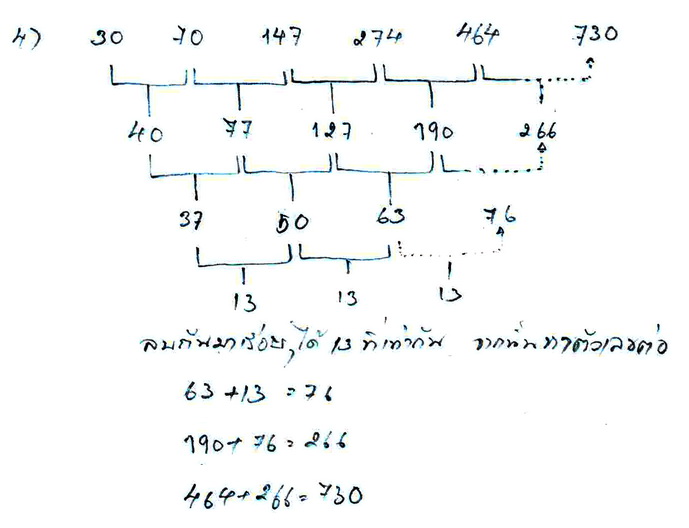 4) 30 70 147 274 464 730
40 77 127 190 266
37 50 63 76
13 13 13
ลบกันมาเรื่อยๆ ได้ 13 ที่เท่ากัน จากนั้นหาตัวเลขต่อ
63 + 13 = 76
190 + 76 = 266
464 + 266 = 730